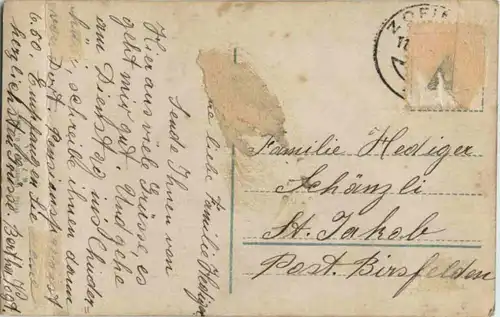 liebe Familie Hediger
Sende Ihnen von
Hier aus viele Grüsse, es
geht mir gut. Und gehe
am Dienstag ins Chuder-
hüsi, schreibe ihnen dann
von Dort
6.50. Empfangen Sie
herzlichsten Grüsse. Bertha Vogt.
ZOFI
Familie Hediger
Schänzli
St. Jakob
Post. Birsfelden